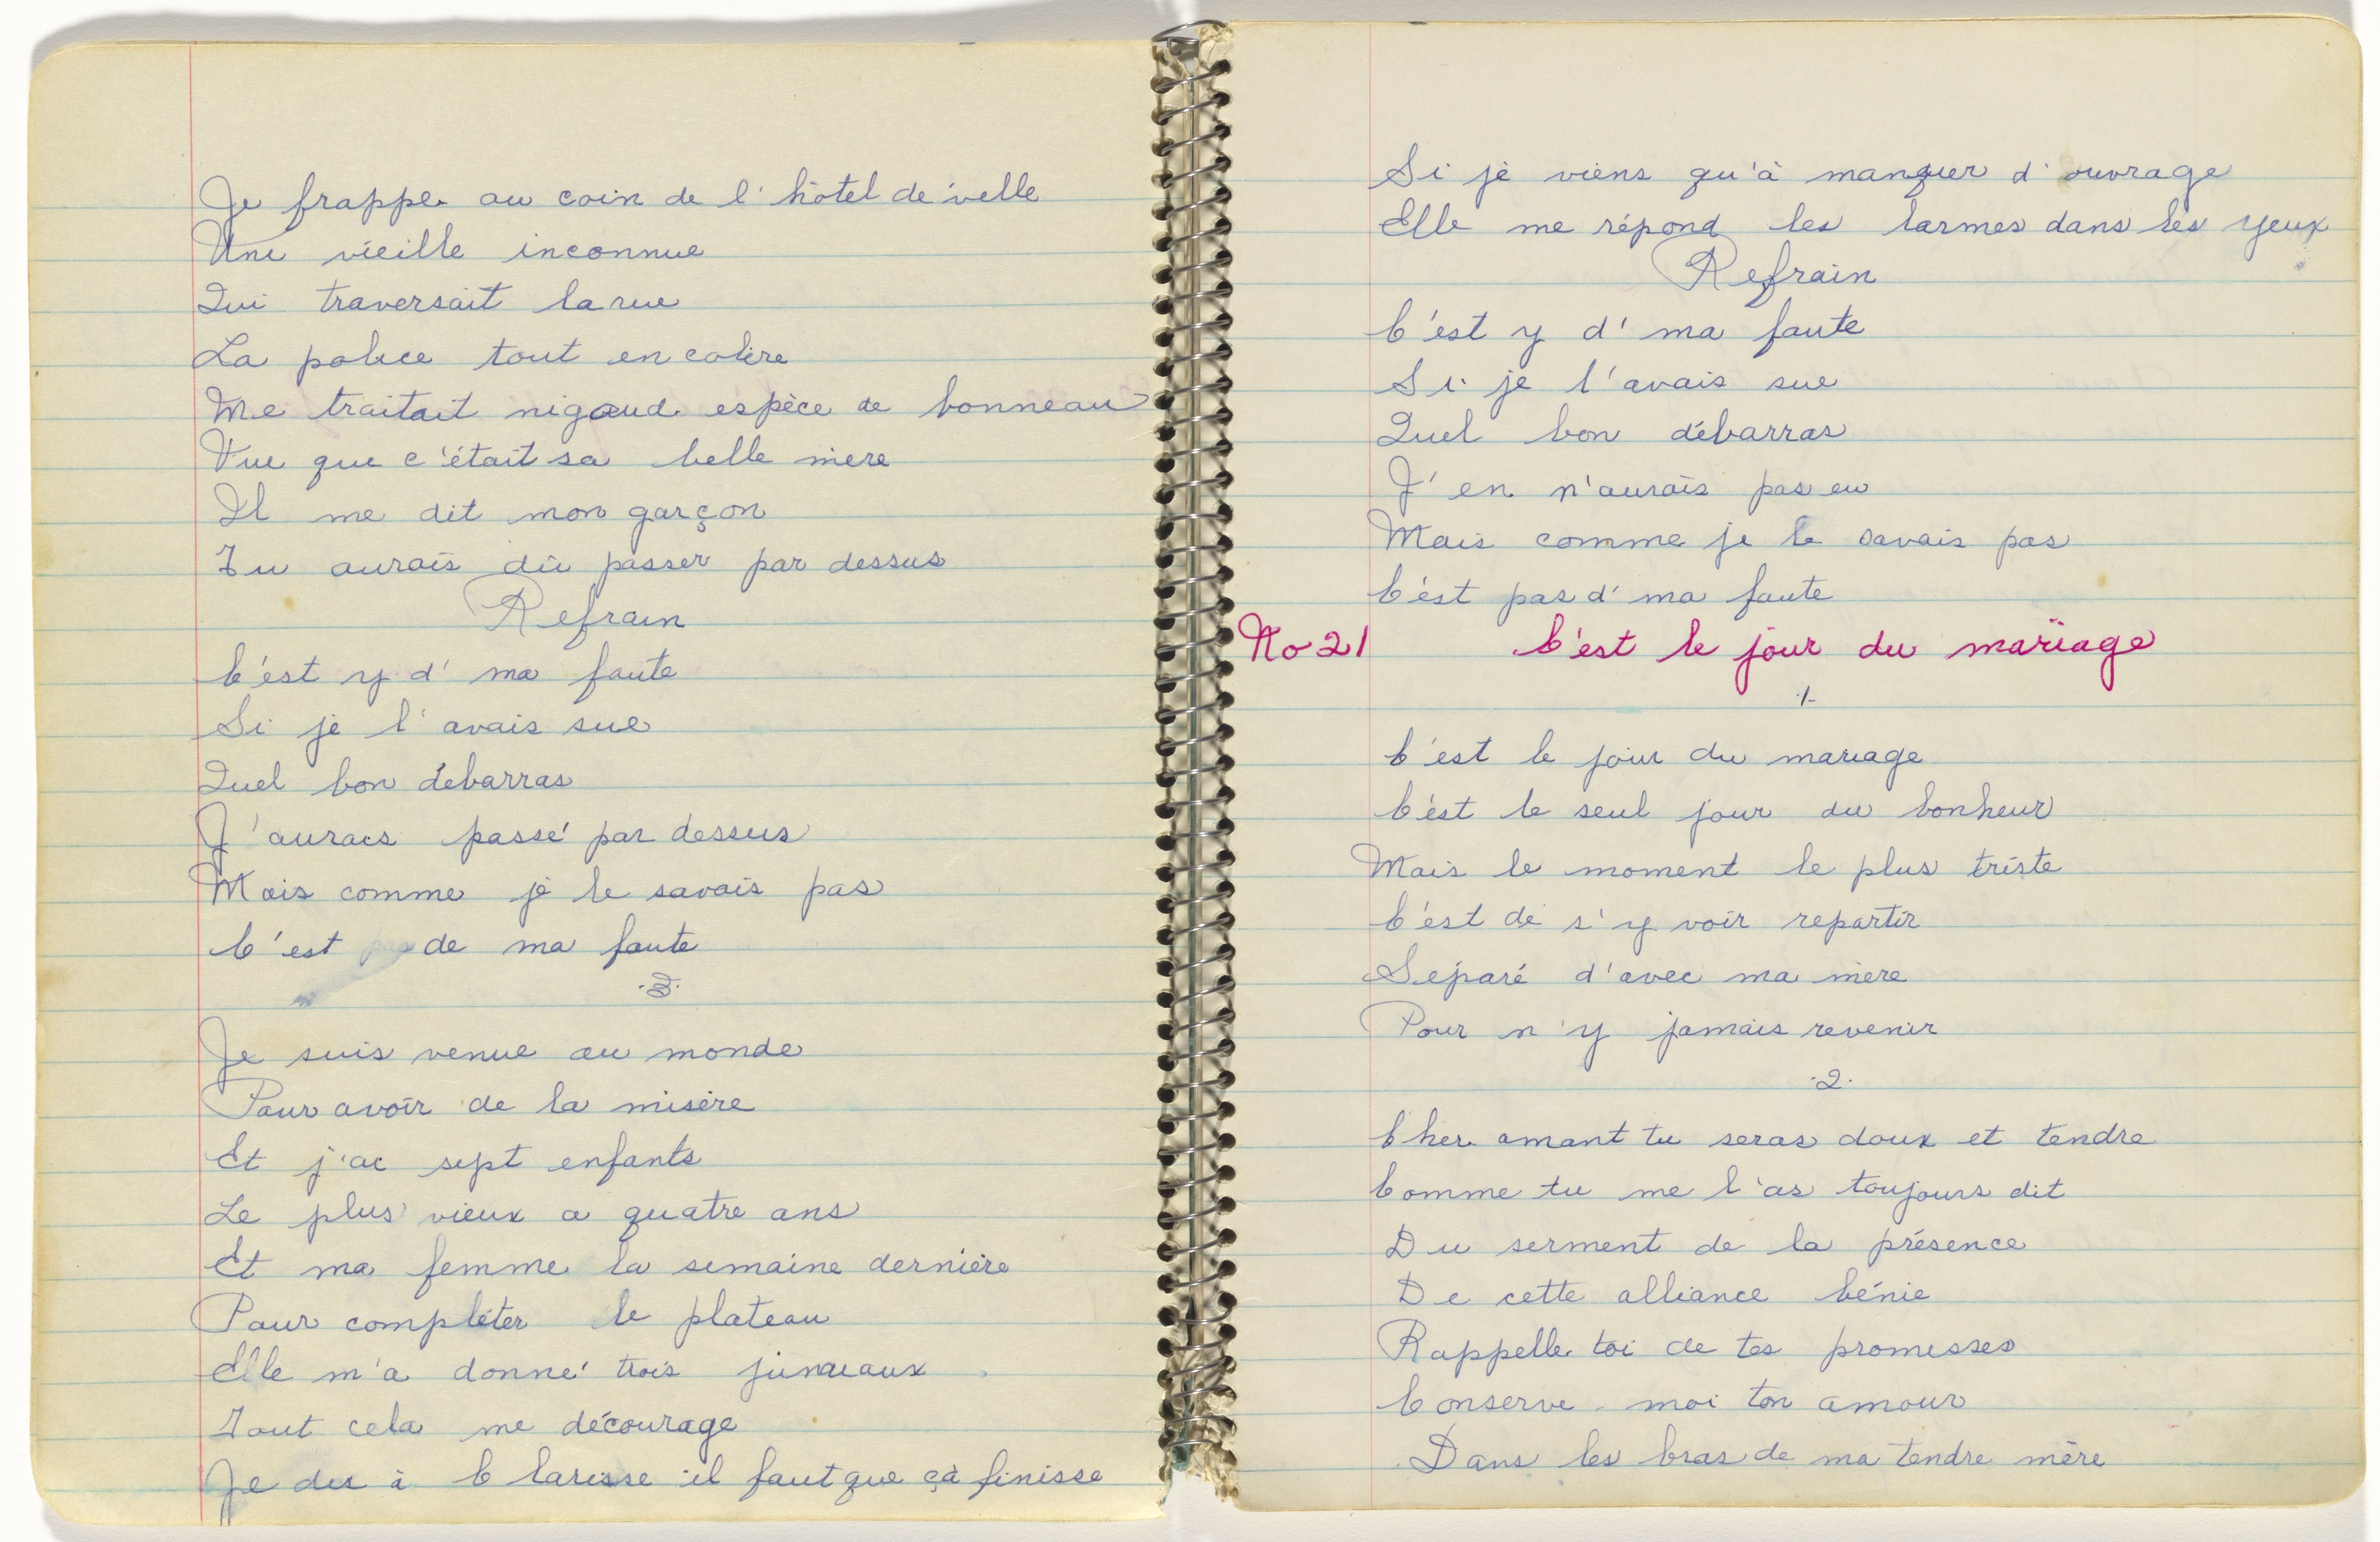 Je frappe au coin de l'hôtel de velle
Une vieille inconnue
Qui traversait la rue
La police tout en colère
Me traitait nigaud espèce de bonneau
Vue que c'était sa belle mère
Il me dit mon garçon
Tu aurais dû passer par dessus
Refrain
C'est y d' ma faute
Si je l'avais sue
Quel bon débarras
J'aurais passé par dessus
Mais comme je le savais pas
C'est pas de ma faute
.3.
Je suis venue au monde
Pour avoir de la misère
Et j'ai sept enfants
Le plus vieux a quatre ans
Et ma femme la semaine dernière
Pour compléter le plateau
Elle m'a donné trois jumeaux
Tout cela me décourage
Je dis à Clarisse il faut que çà finisse
Si je viens qu'à manquer d'ouvrage
Elle me répond les larmes dans les yeux
Refrain
C'est y d' ma faute
Si je l'avais sue
Quel bon débarras
J'en n'aurais pas eu
Mais comme je le savais pas
C'est pas d' ma faute
No 21 C'est le jour du mariage
.1.
C'est le jour du mariage
C'est le seul jour du bonheur
Mais le moment le plus triste
C'est de s'y voir repartir
Séparé d'avec ma mère
Pour n'y jamais revenir
.2.
Cher amant tu seras doux et tendre
Comme tu me l'as toujours dit
Du serment de la présence
De cette alliance bénie
Rappelle toi de tes promesses
Conserve moi ton amour
Dans les bras de ma tendre mère